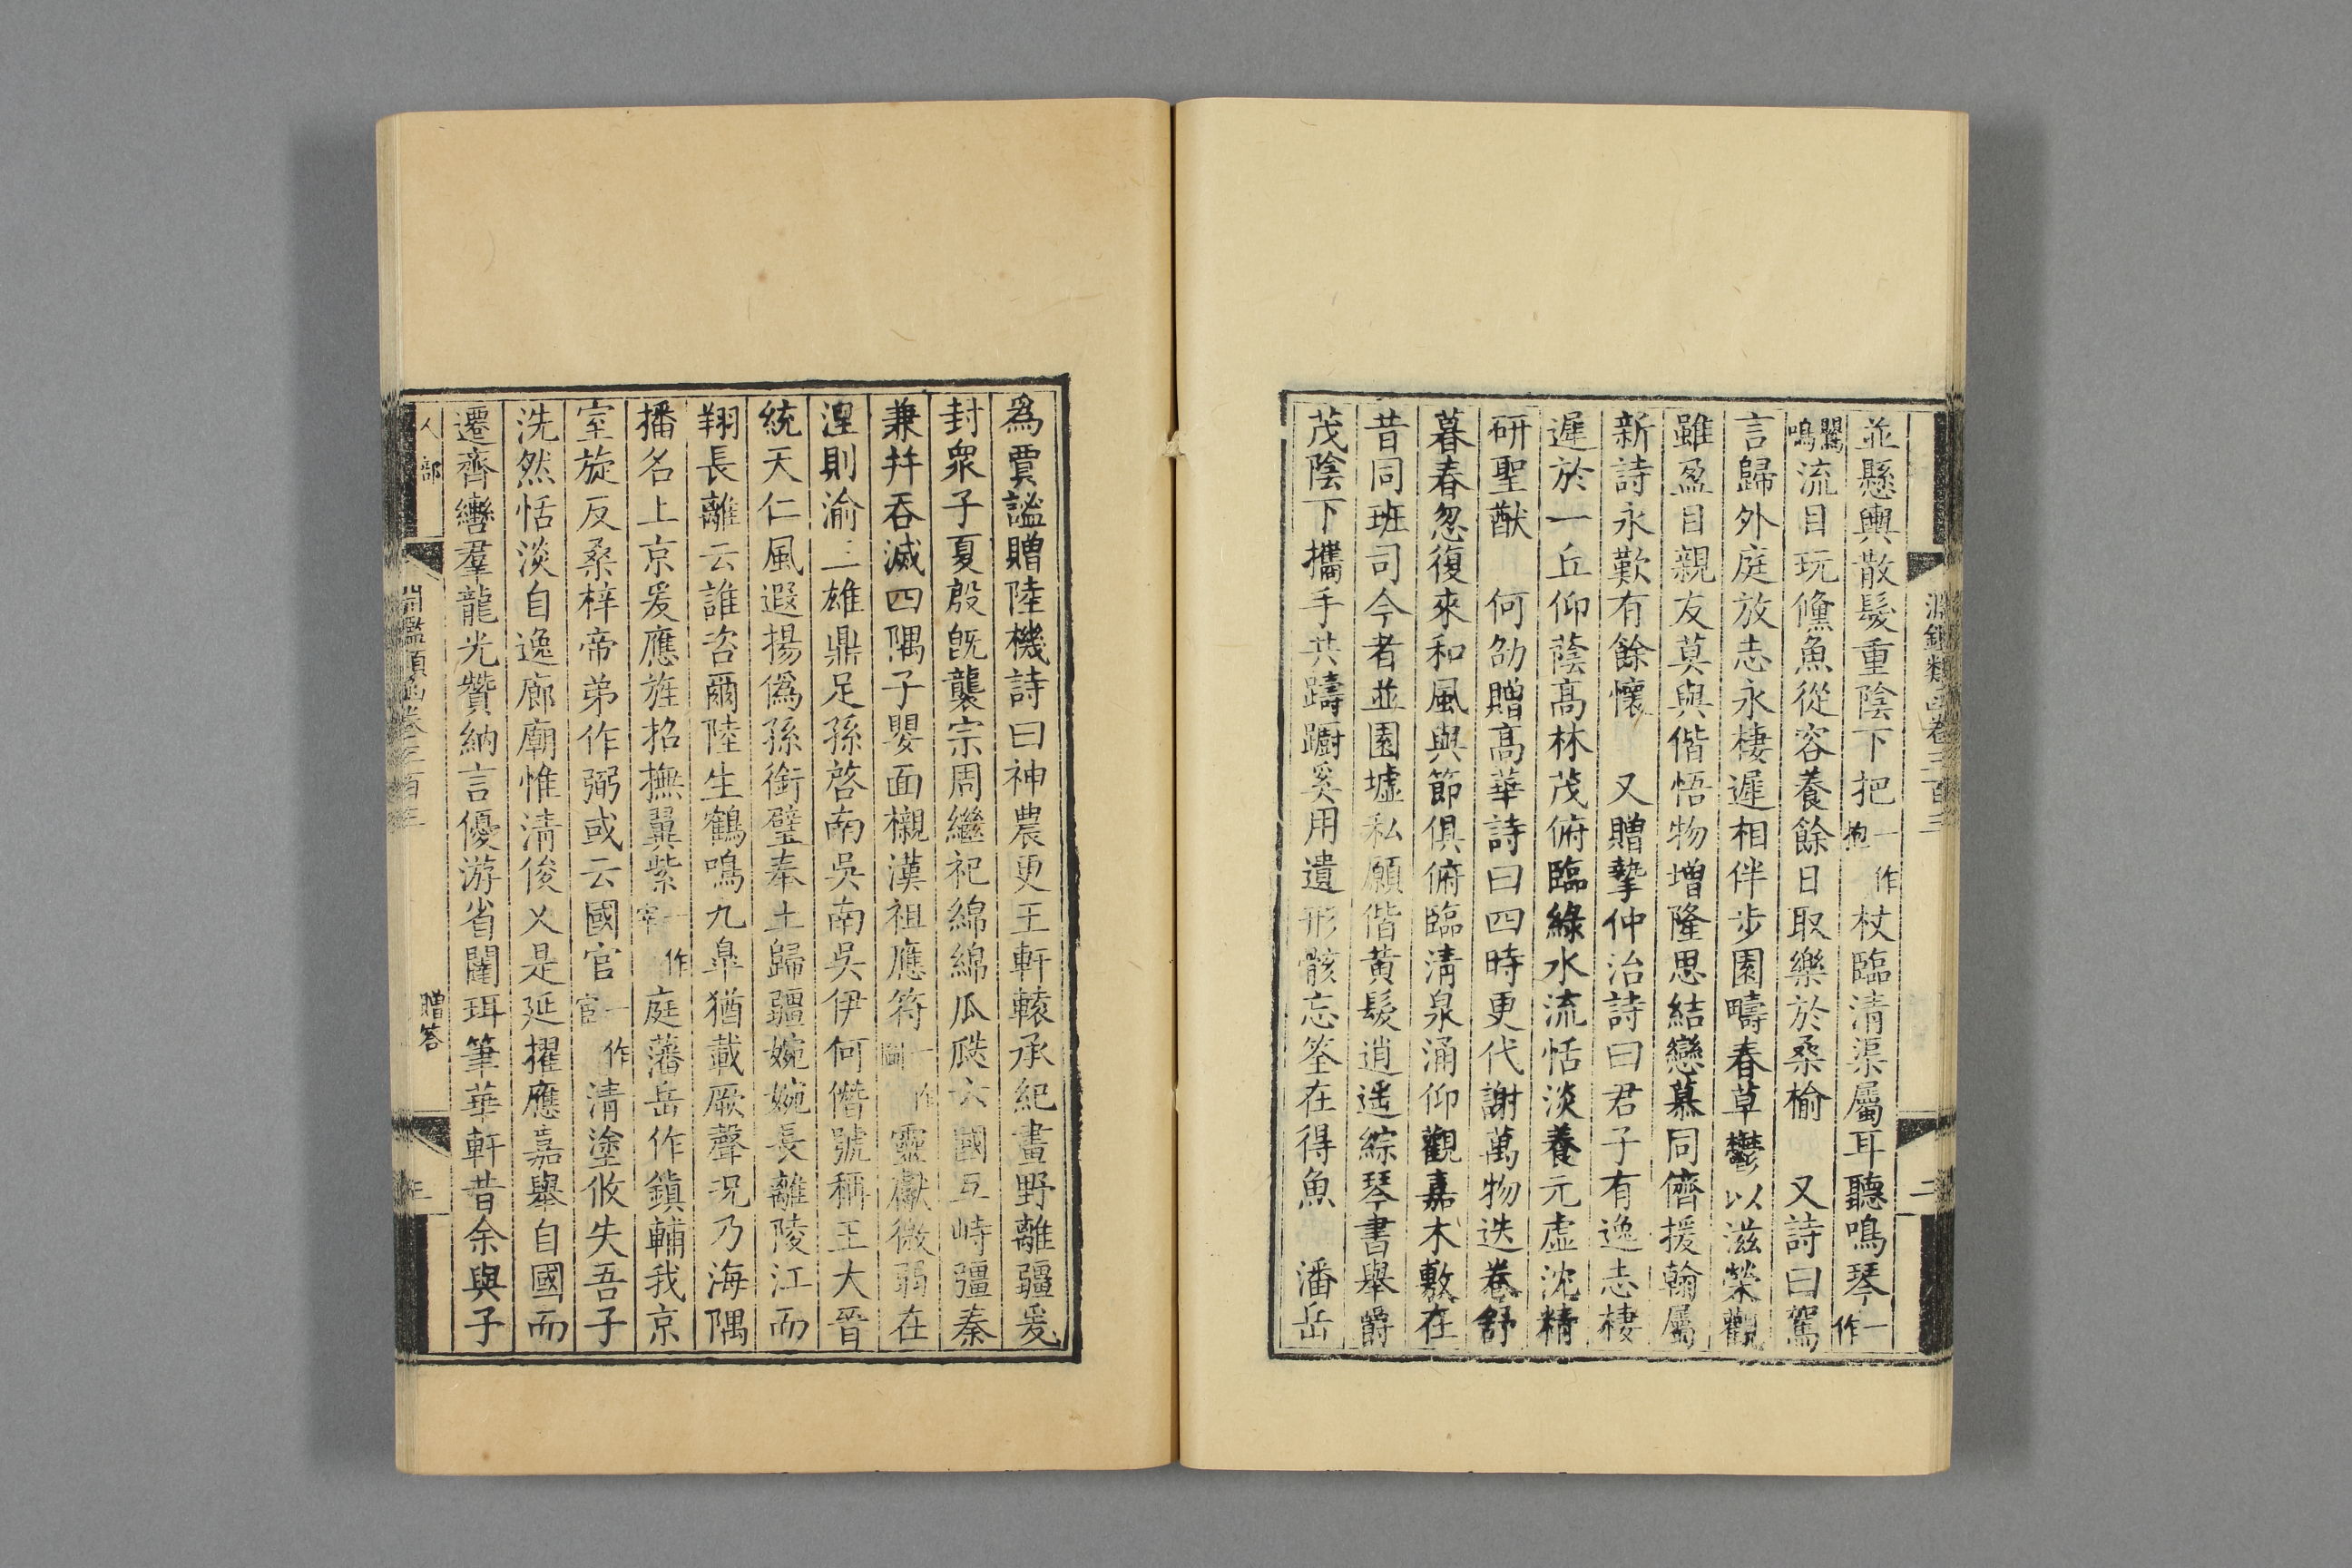 淵鑑類函卷三百三
二
並懸輿散髮重陰下把一作抱杖臨清渠屬耳聽鳴琴一作
鸎鳴流目玩儵魚從容養餘日取樂於桑榆　又詩曰駕
言歸外庭放志永棲遲相伴步園疇春草鬱以滋榮觀
雖盈目親友莫與偕悟物增隆思結戀慕同儕援翰屬
新詩永歎有餘懷　又贈摯仲治詩曰君子有逸志棲
遲於一丘仰蔭高林茂俯臨綠水流恬淡養元虛沈精
研聖猷　何劭贈高華詩曰四時更代謝萬物迭卷舒
暮春忽復來和風與節俱俯臨清泉涌仰觀嘉木敷在
昔同班司今者並園墟私願偕黃髮逍遙綜琴書舉爵
茂陰下攜手共躊躕奚用遺形骸忘筌在得魚　潘岳
爲賈謐贈陸機詩曰神農更王軒轅承紀畫野離疆爰
封衆子夏殷旣襲宗周繼祀綿綿瓜瓞六國互峙彊秦
兼幷吞滅四隅子嬰面櫬漢祖應符一作圖靈獻微弱在
涅則渝三雄鼎足孫啓南吳南吳伊何僭號稱王大晉
統天仁風遐揚僞孫銜璧奉土歸疆婉婉長離陵江而
翔長離云誰咨爾陸生鶴鳴九臯猶載厥聲況乃海隅
播名上京爰應旌招撫翼紫一作宰庭藩岳作鎮輔我京
室旋反桑梓帝弟作弼或云國官一作宦清塗攸失吾子
洗然恬淡自逸廊廟惟清俊乂是延擢應嘉舉自國而
遷齊轡羣龍光贊納言優游省闥珥筆華軒昔余與子
人部
淵鑑類函卷三百三
贈答
三